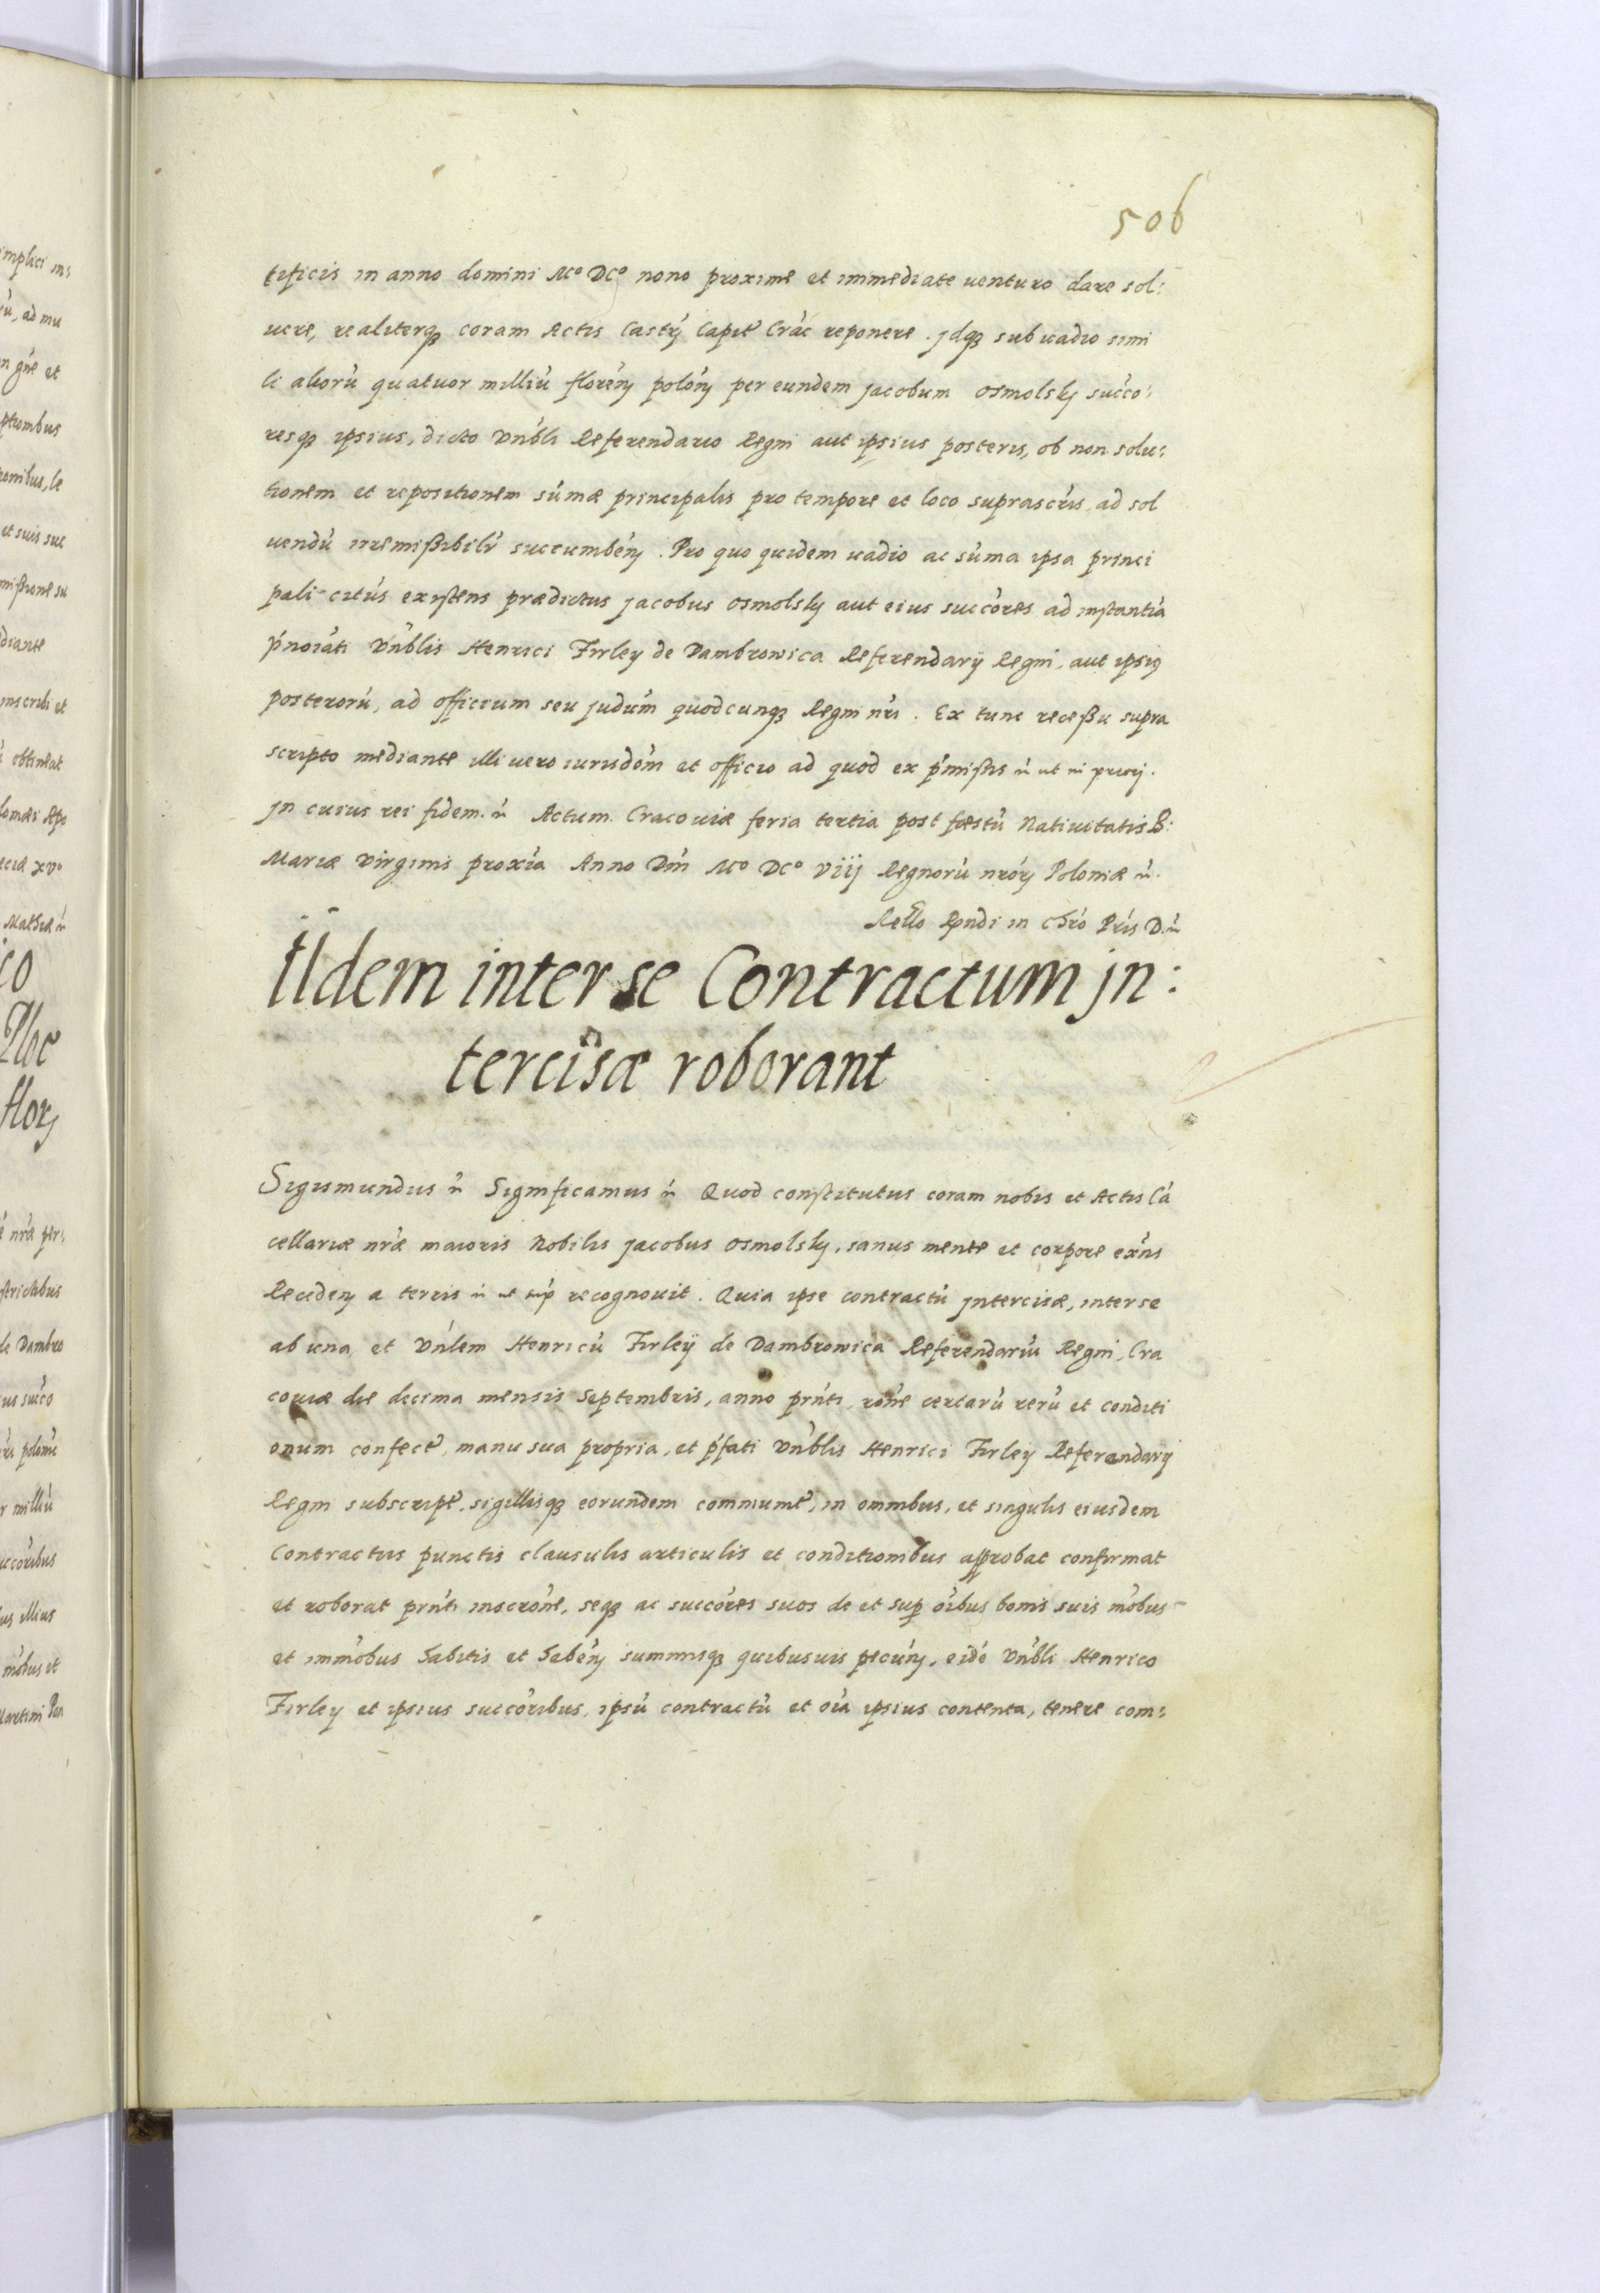 506
tificis in anno domini Mo DCo nono proxime et immediate venturo dare sol:
uere, realiterq coram Actis Castrn Capit Crac reponere. jdq sub vadio simi
li alioru quatuor milliu florenn polonn per eundem Jacobum Osmolsky succo:
resq ipsius, dicto Vnbli Referendario Regni aut ipsius posteris, ob non solu:
tionem et repositionem sumæ principalis pro tempore et loco suprascris ad sol
uendu irremissibilr succumben. Pro quo quidem vadio ac suma ipsa princi
pali citus existens prædictus Jacobus Osmolsky aut eius succores ad instantia
pnoiati Vnblis Henrici Firley de Dambrowica Referendarij Regni, aut ipsiq
posteroru, ad officium seu judum quodcunq Regni nri. Ex tunc recessu supra
scripto mediante illi vero iurisdom et officio ad quod ex pmissis ut in priorj.
Jn cuius rei fidem. Actum Cracouiæ feria tertia post fæstu Natiuitatis B:
Mariæ Virginis proxia Anno Dni Mo DCo viij Regnoru nrorn Poloniæ
Rello Rndi in Chro Pris D.
Iidem inter se Contractum jn:
tercisæ roborant
Sigismundus Significamus Quod constitutus coram nobis et Actis Ca
cellariæ nræ maioris Nobilis Jacobus Osmolsky, sanus mente et corpore exns
Receden a terris ut sup recognouit. Quia ipse contractu jntercisæ, inter se
ab vna et Vnlem Henricu Firleÿ de Dambrowica Referendariu Regni, Cra
couiæ die decima mensis Septembris, anno prnti rone certaru reru et conditi
onum confect, manu sua propria, et pfati Vnblis Henrici Firley Referendarij
Regni subscript, sigillisq eorundem communit, in omnibus, et singulis eiusdem
Contractus punctis clausulis articulis et conditionibus approbat confirmat
et roborat prnti inscrone, seq ac succores suos de et sup oibus bonis suis mobus
et immobus habitis et haben summisq quibusuis pecun, eide Vnbli Henrico
Firley et ipsius succoribus, ipsu contractu et oia ipsius contenta, tenere com: